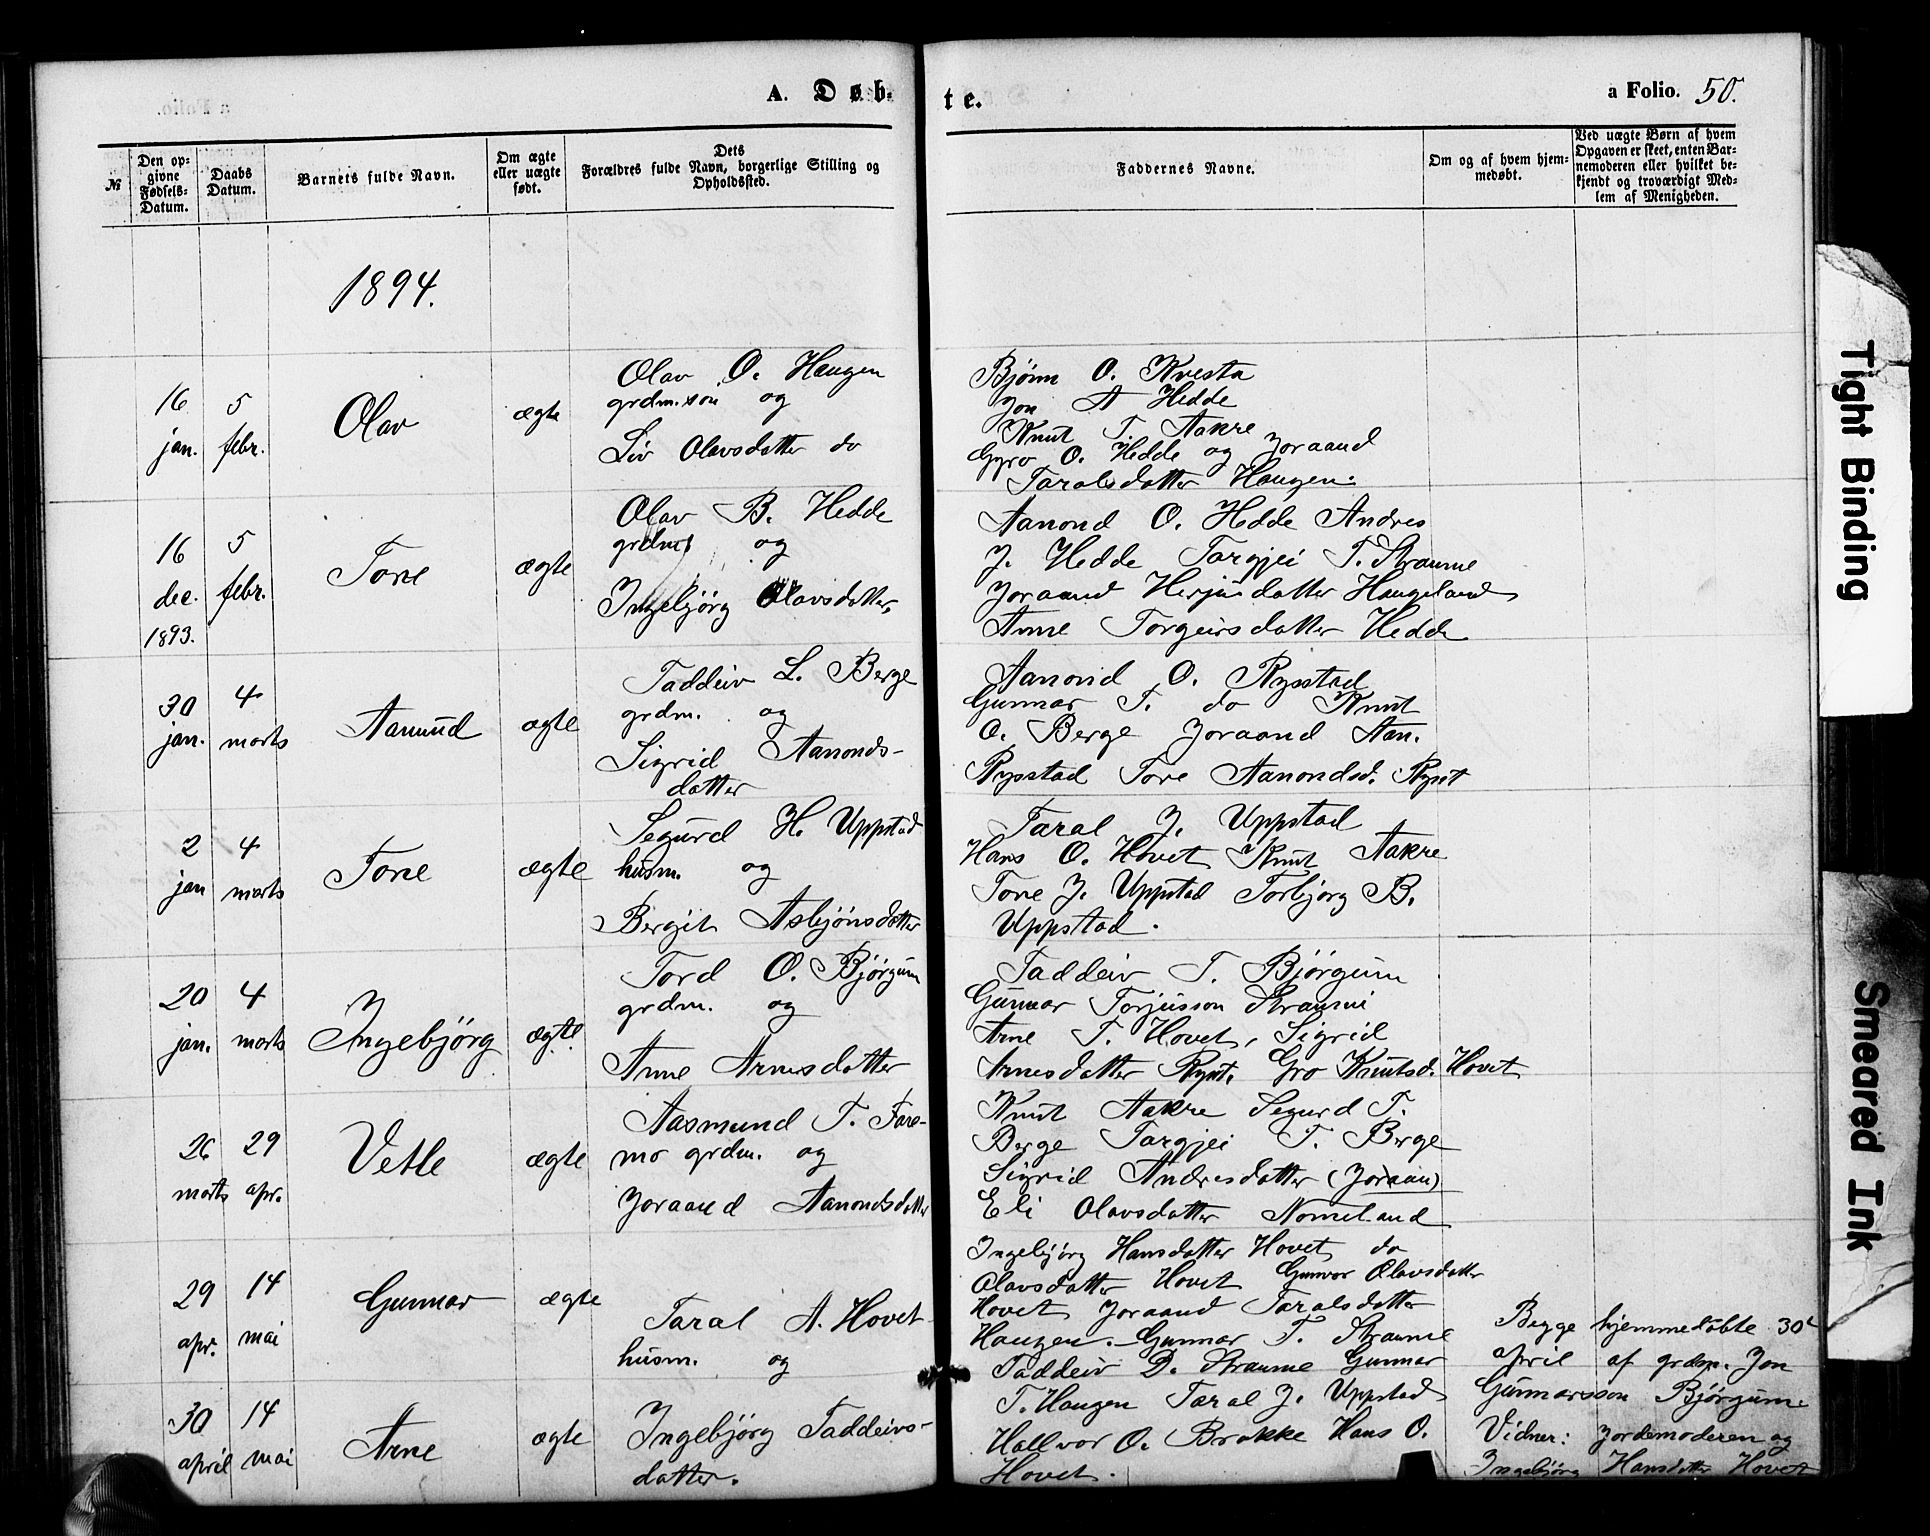 A. Døb-
te.
a Folio. 50.
№
Den op-
givne
Fødsels-
Datum.
Daabs
Datum.
Barnets fulde Navn.
Om ægte
eller uægte
født.
Dets
Forældres fulde Navn, borgerlige Stilling og
Opholdssted.
Faddernes Navne.
Om og af hvem hjem-
medøbt.
Ved uægte Børn af hvem
Opgaven er skeet, enten Bar-
nemoderen eller hvilket be-
kjendt og troværdigt Med-
lem af Menigheden.
1894.
16
jan.
5
febr.
Olav
ægte
Olav O. Haugen
grdm.son og
Liv Olavsdatter do
Bjønn O. Kvesta
Jon A Hedde
Knut T. Aakre
Gyro O. Hedde og Joraand
Taralsdatter Haugen.
16
dec.
1893.
5
febr.
Tone
ægte
Olav B. Hedde
grdm. og
Ingebjörg Olavsdatter
Aanond O. Hedde Andres
J. Hedde Targjei T. Straume
Joraand Herjusdatter Haugeland
Anne Torgeirsdatter Hedde
30
jan.
4
marts
Aamund
ægte
Taddeiv L. Berge
grdm. og
Sigrid Aanonds-
datter
Aanond O. Rysstad
Gunnar T. do Knut
O. Berge Joraand Aan.
Rysstad Tore Aanondsd. Ryst
2
jan
4
marts
Tone
ægte
Segurd H. Uppstad
husm. og
Bergit Asbjönsdatter
Taral J. Uppstad
Hans O. Hovet Knut Aakre
Tone J. Uppstad Torbjorg B.
Uppstad.
20
jan.
4
marts
Ingebjörg
ægte
Tord O. Bjørgum
grdm. og
Anne Arnesdatter
Taddeiv T. Bjørgum
Gunnar Torjusson Straume
Arne T. Hovet, Sigrid
Arnesdatter Ryst. Gro Knutsd. Hovet
26
marts
29
apr.
Vetle
ægte
Aasmund T. Fare-
mo grdm. og
Joraand Aanondsdatter
Knut Aakre Segurd T.
Berge Targjei T. Berge
Sigrid Andresdatter (Joraan)
Eli Olavsdatter Nomeland
29
apr.
14
mai
Gunnar
ægte
Taral A. Hovet
husm. og
Ingebjørg Hansdatter Hovet do
Olavsdatter Hovet Gunvor Olavsdatter
Hovet Joraand Taralsdatter
Haugen. Gunnar T. Straume
Taddeiv D. Straume Gunnar
Begge hjemmedøbte 30
april af grdm. Jon
Gunnarsson Bjørgum.
Vidner: Jordemoderen og
Ingebjörg Hansdatter Hovet
30
april
14
mai
Arne
ægte
Ingebjörg Taddeivs-
datter.
T. Haugen Taral J. Uppstad
Hallvor O. Brokke Hans O.
Hovet.
Tight Binding
Smeared Ink